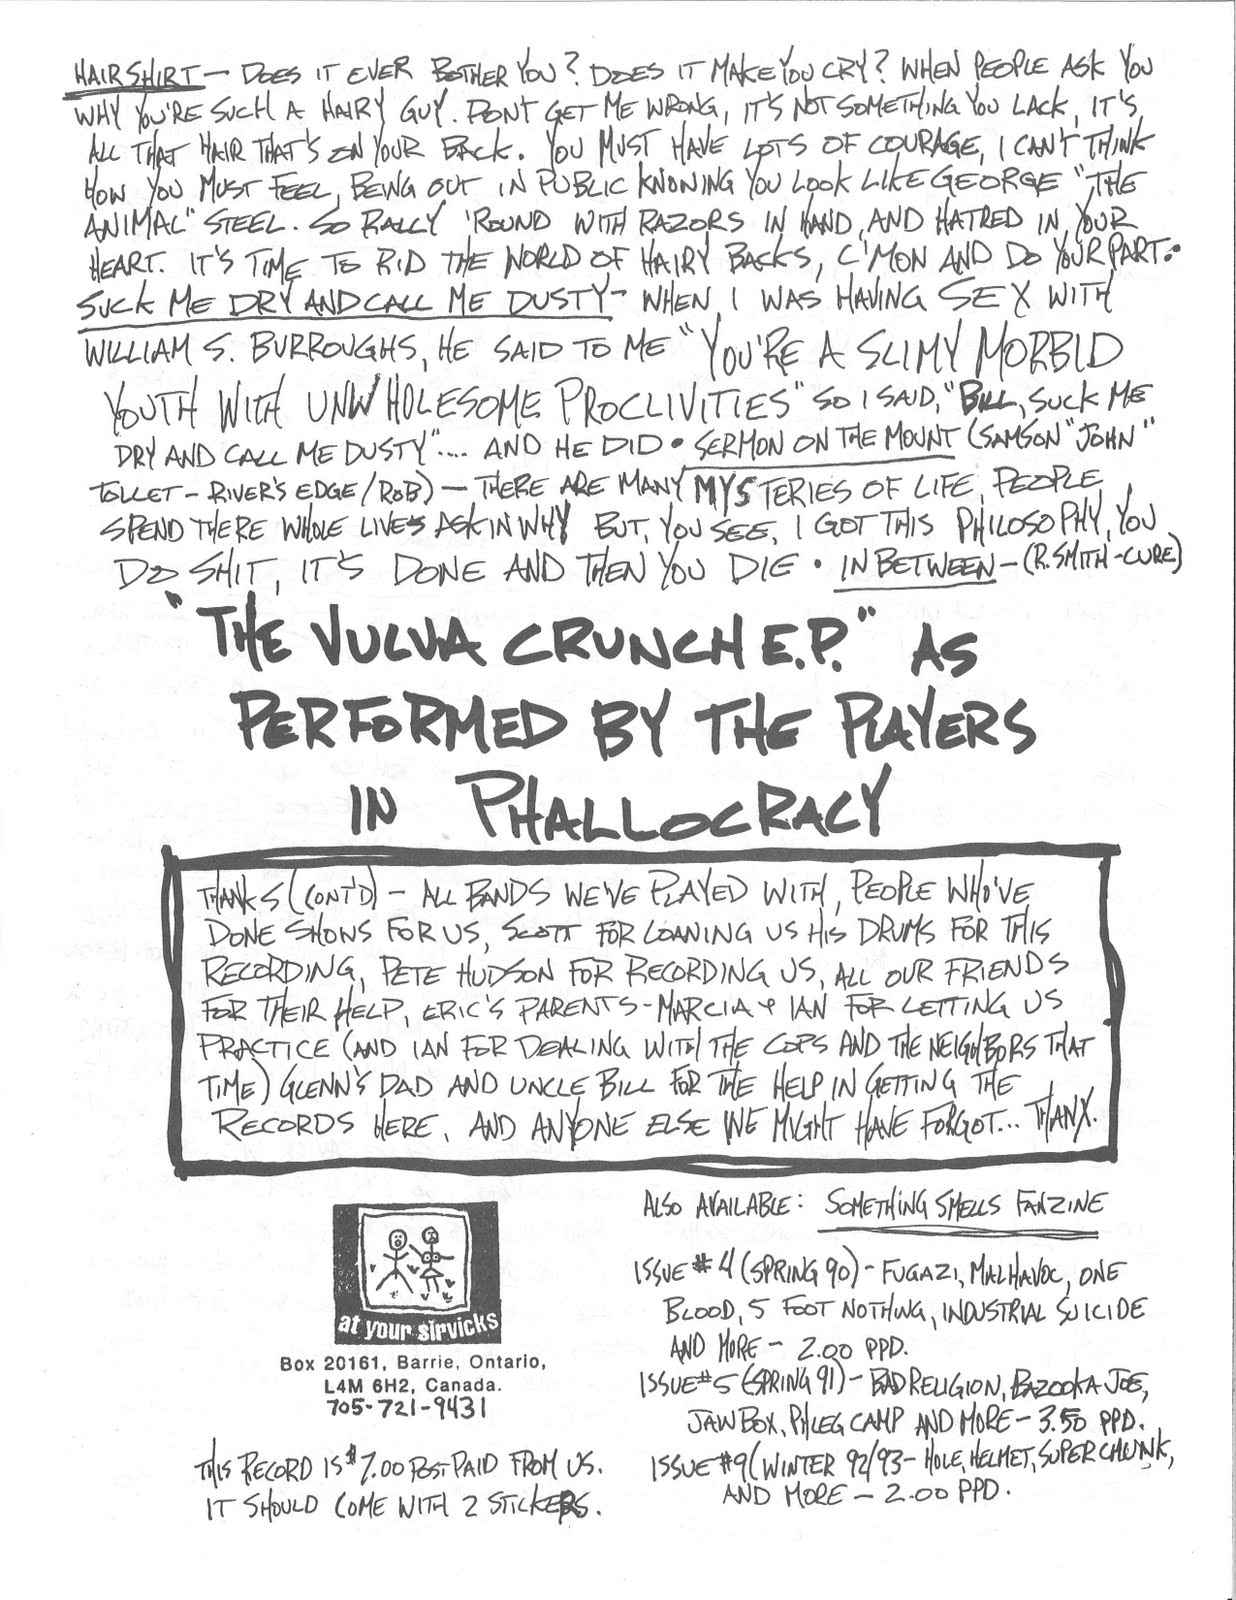 HAIRSHIRT - DOES IT EVER BOTHER YOU? DOES IT MAKE YOU CRY? WHEN PEOPLE ASK YOU
WHY YOU'RE SUCH A HAIRY GUY. DON'T GET ME WRONG, IT'S NOT SOMETHING YOU LACK, IT'S
ALL THAT HAIR THAT'S ON YOUR BACK. YOU MUST HAVE LOTS OF COURAGE, I CAN'T THINK
HOW YOU MUST FEEL, BEING OUT IN PUBLIC KNOWING YOU LOOK LIKE GEORGE "THE
ANIMAL" STEEL. SO RALLY 'ROUND WITH RAZORS IN HAND, AND HATRED IN YOUR
HEART. IT'S TIME TO RID THE WORLD OF HAIRY BACKS, C'MON AND DO YOUR PART. •
SUCK ME DRY AND CALL ME DUSTY - WHEN I WAS HAVING SEX WITH
WILLIAM S. BURROUGHS, HE SAID TO ME "YOU'RE A SLIMY MORBID
YOUTH WITH UNWHOLESOME PROCLIVITIES" SO I SAID, "BILL, SUCK ME
DRY AND CALL ME DUSTY".... AND HE DID • SERMON ON THE MOUNT (SAMSON "JOHN"
TOLLET - RIVER'S EDGE/ROB) - THERE ARE MANY MYSTERIES OF LIFE, PEOPLE
SPEND THERE WHOLE LIVES ASKIN WHY BUT, YOU SEE, I GOT THIS PHILOSOPHY, YOU
DO SHIT, IT'S DONE AND THEN YOU DIE • IN BETWEEN - (R. SMITH - CURE)
"THE VULVA CRUNCH E.P." AS
PERFORMED BY THE PLAYERS
IN PHALLOCRACY
THANKS (CONT'D) - ALL BANDS WE'VE PLAYED WITH, PEOPLE WHO'VE
DONE SHOWS FOR US, SCOTT FOR LOANING US HIS DRUMS FOR THIS
RECORDING, PETE HUDSON FOR RECORDING US, ALL OUR FRIENDS
FOR THEIR HELP, ERIC'S PARENTS - MARCIA + IAN FOR LETTING US
PRACTICE (AND IAN FOR DEALING WITH THE COPS AND THE NEIGHBORS THAT
TIME) GLENN'S DAD AND UNCLE BILL FOR THE HELP IN GETTING THE
RECORDS HERE, AND ANYONE ELSE WE MIGHT HAVE FORGOT... THANX.
at your sirvicks
Box 20161, Barrie, Ontario,
L4M 6H2, Canada.
705-721-9431
THIS RECORD IS $7.00 POST PAID FROM US.
IT SHOULD COME WITH 2 STICKERS.
ALSO AVAILABLE: SOMETHING SMELLS FANZINE
ISSUE #4 (SPRING 90) - FUGAZI, MALHAVOC, ONE
BLOOD, 5 FOOT NOTHING, INDUSTRIAL SUICIDE
AND MORE - 2.00 PPD.
ISSUE #5 (SPRING 91) - BAD RELIGION, BAZOOKA JOE,
JAWBOX, PHLEG CAMP AND MORE - 3.50 PPD.
ISSUE #9 (WINTER 92/93 - HOLE, HELMET, SUPERCHUNK,
AND MORE - 2.00 PPD.